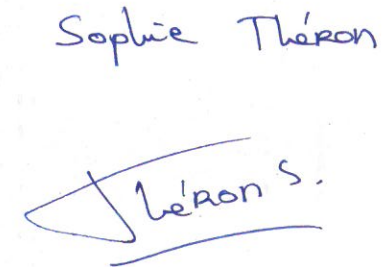 Sophie Théron
Théron S.